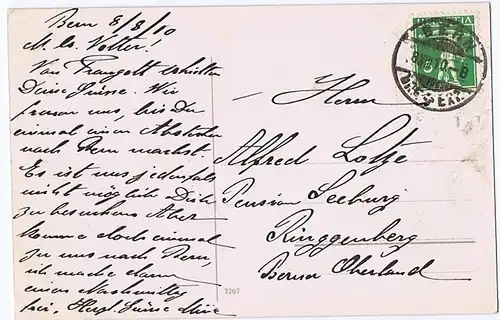 Bern 8/8/10
M. lb. Vetter!
Von Traugott erhielten
Deine Grüsse. Wir
freuen uns, bis Du
einmal einen Abstecher
nach Bern machst.
Es ist uns jedenfalls
nicht möglich Dich
zu besuchen. Aber
komme doch einmal
zu uns nach Bern,
ich mache dann
einen Nachmittag
frei. Herzl. Grüsse
HELVETIA
Herrn
Alfred Lotje
Pension Seeburg
Ringgenberg
Berner Oberland
3267